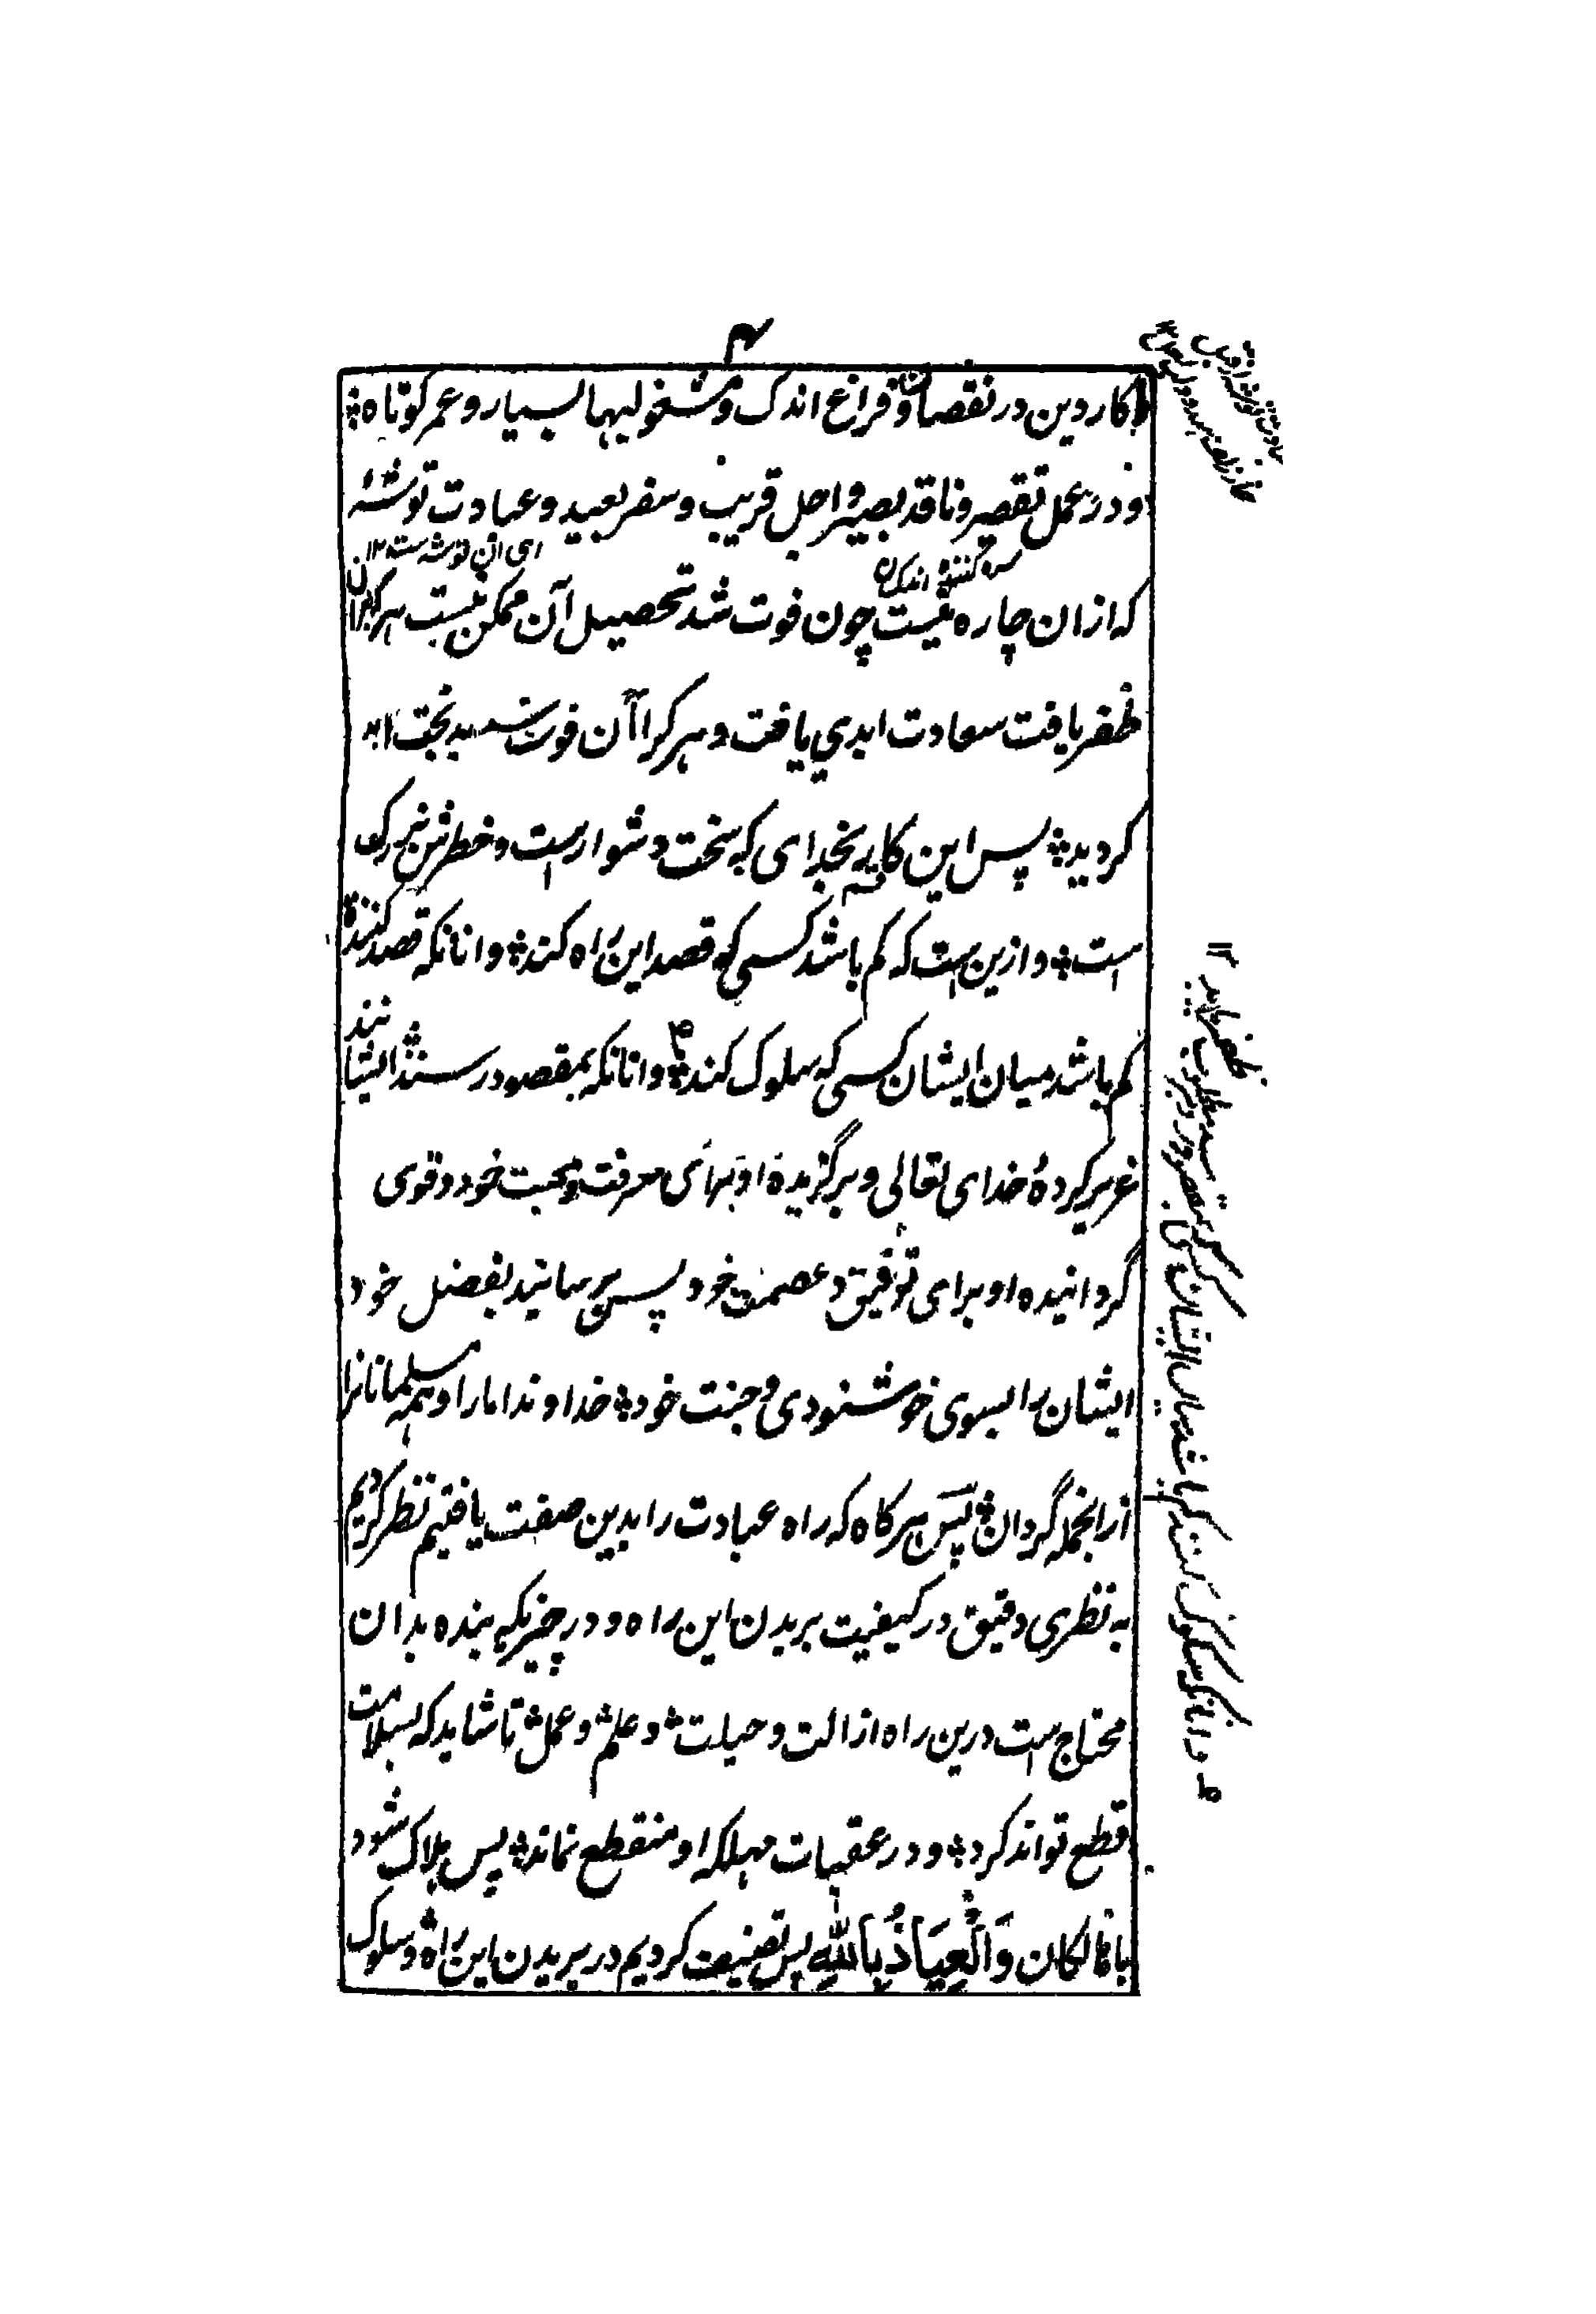 ۴
کار دین در نقصان و فراغ اندک و مشغولیها بسیار و عمر کوتاه ؞
و در عمل تقصیر و ناقد بصیر و اجل قریب و سفر بعید و عبادت توشهٔ
ای این توشه است ۱۲
که ازان چاره نیست چون فوت شد تحصیل آن ممکن نیست هر که بران
ظفر یافت سعادت ابدی یافت و هر کرا آن فوت شد بدبخت ابد
گردید ؞ پس این کار بخدای که سخت دشوارست و خطرش بزرگ
است ؞ و ازین است که کم باشد کسی که قصد این راه کند ؞ و انانکه قصد کننده
اند
کم باشد میان ایشان کسی که سلوک کند ؞ و انانکه بمقصود رسند ایشانند
عزیز کردهٔ خدای تعالی و برگزیدهٔ او بهای معرفت و محبت خود و قوی
گردانیده او برای توفیق و عصمت خود پس برسانید بفضل خود
ایشان را بسوی خوشنودی و جنت خود ؞ خداوندا ما را و همه مسلمانانرا
ازانجمله گردان ؞ پس هرگاه که راه عبادت را بدین صفت یافتیم نظر کردیم
به نظری دقیق در کیفیت بریدن این راه و در چیزیکه بنده بدان
محتاج است درین راه از الت و حیلت ؞ و علم ؞ و عمل ؞ تا شاید که بسلامت
قطع تواند کرد ؞ و در عقبات مهلکه او منقطع نماند ؞ پس هلاک شود
با هالکان وَالْعِیَاذُ بِاللّٰهِ پس تصنیف کردیم در بریدن این راه و سلوک